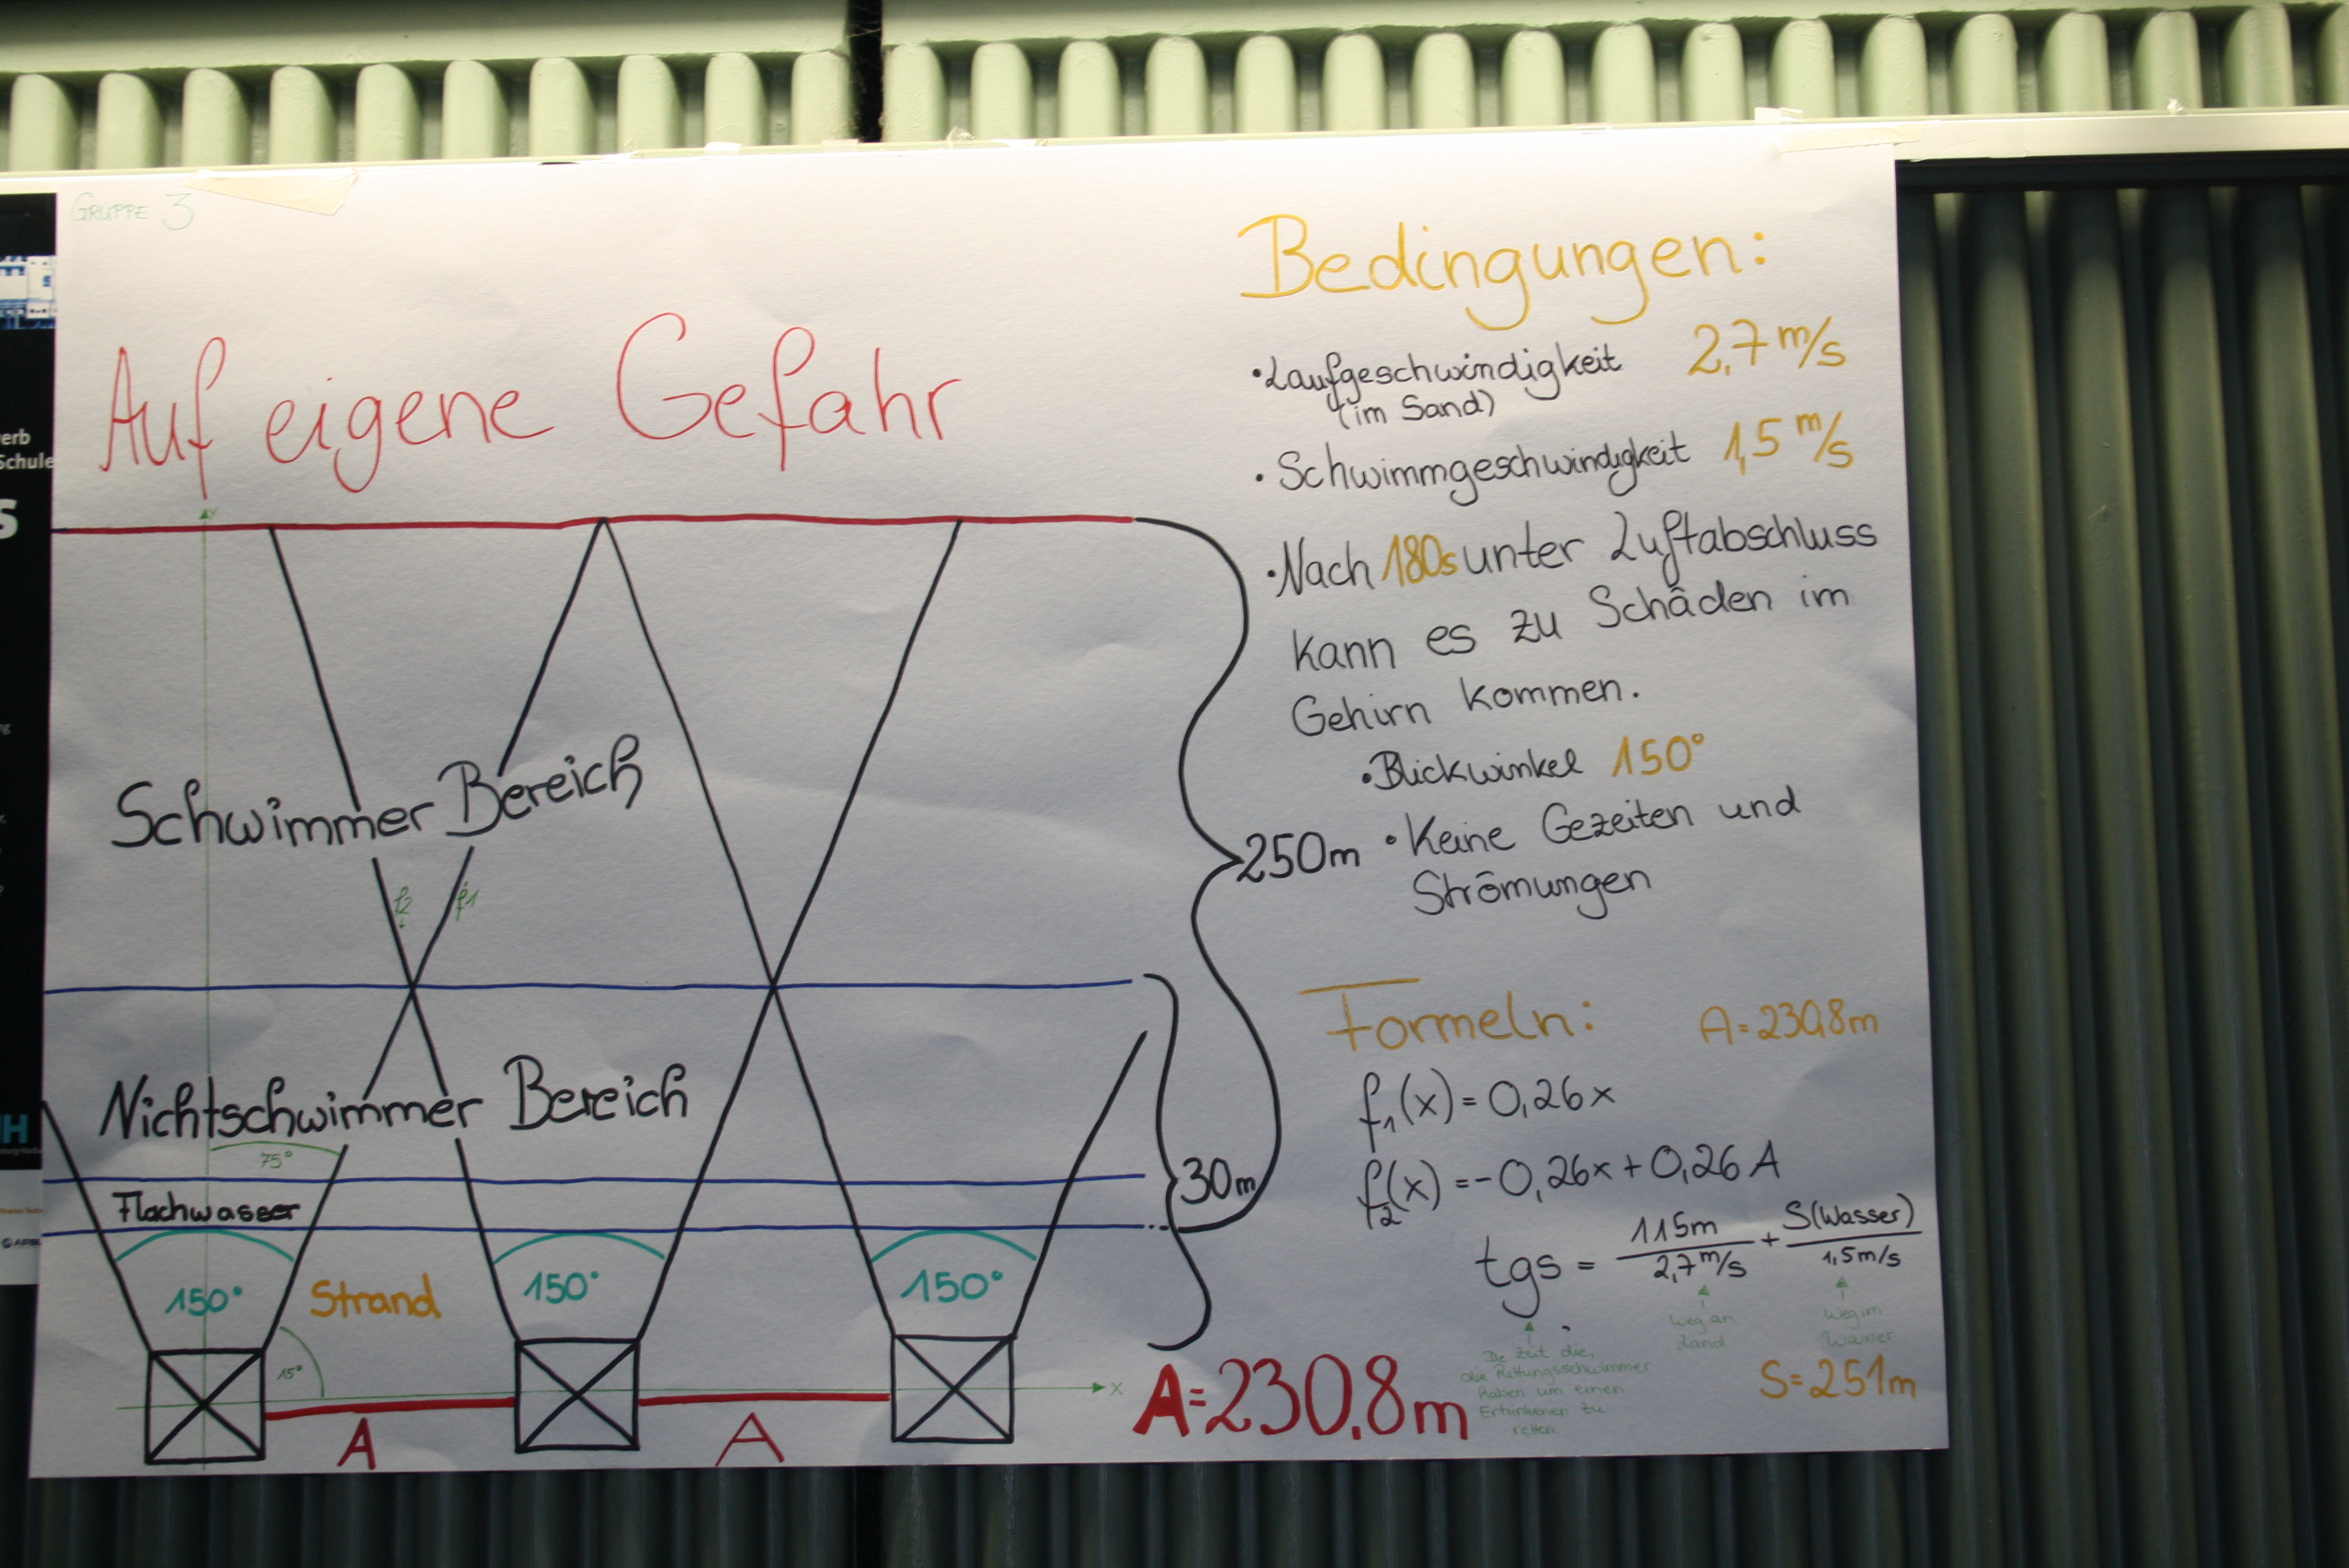 GRUPPE 3
Auf eigene Gefahr
y
Schwimmer Bereich
f2
f1
Nichtschwimmer Bereich
75°
Flachwasser
150°
Strand
150°
150°
15°
x
A
A
A=230.8m
250m
30m
Bedingungen:
•Laufgeschwindigkeit 2,7 m/s
(im Sand)
• Schwimmgeschwindigkeit 1,5 m/s
•Nach 180s unter Luftabschluss
kann es zu Schäden im
Gehirn kommen.
•Blickwinkel 150°
• Keine Gezeiten und
Strömungen
Formeln: A=230,8m
f₁(x) = 0,26x
f₂(x) = -0,26x + 0,26 A
tgs = 115m / 2,7 m/s + S(Wasser) / 1,5m/s
Weg an
Land
Weg im
Wasser
Die Zeit die,
die Rettungsschwimmer
haben um einen
Ertrinkenen zu
retten.
S=251m
erb
Schule
S
H